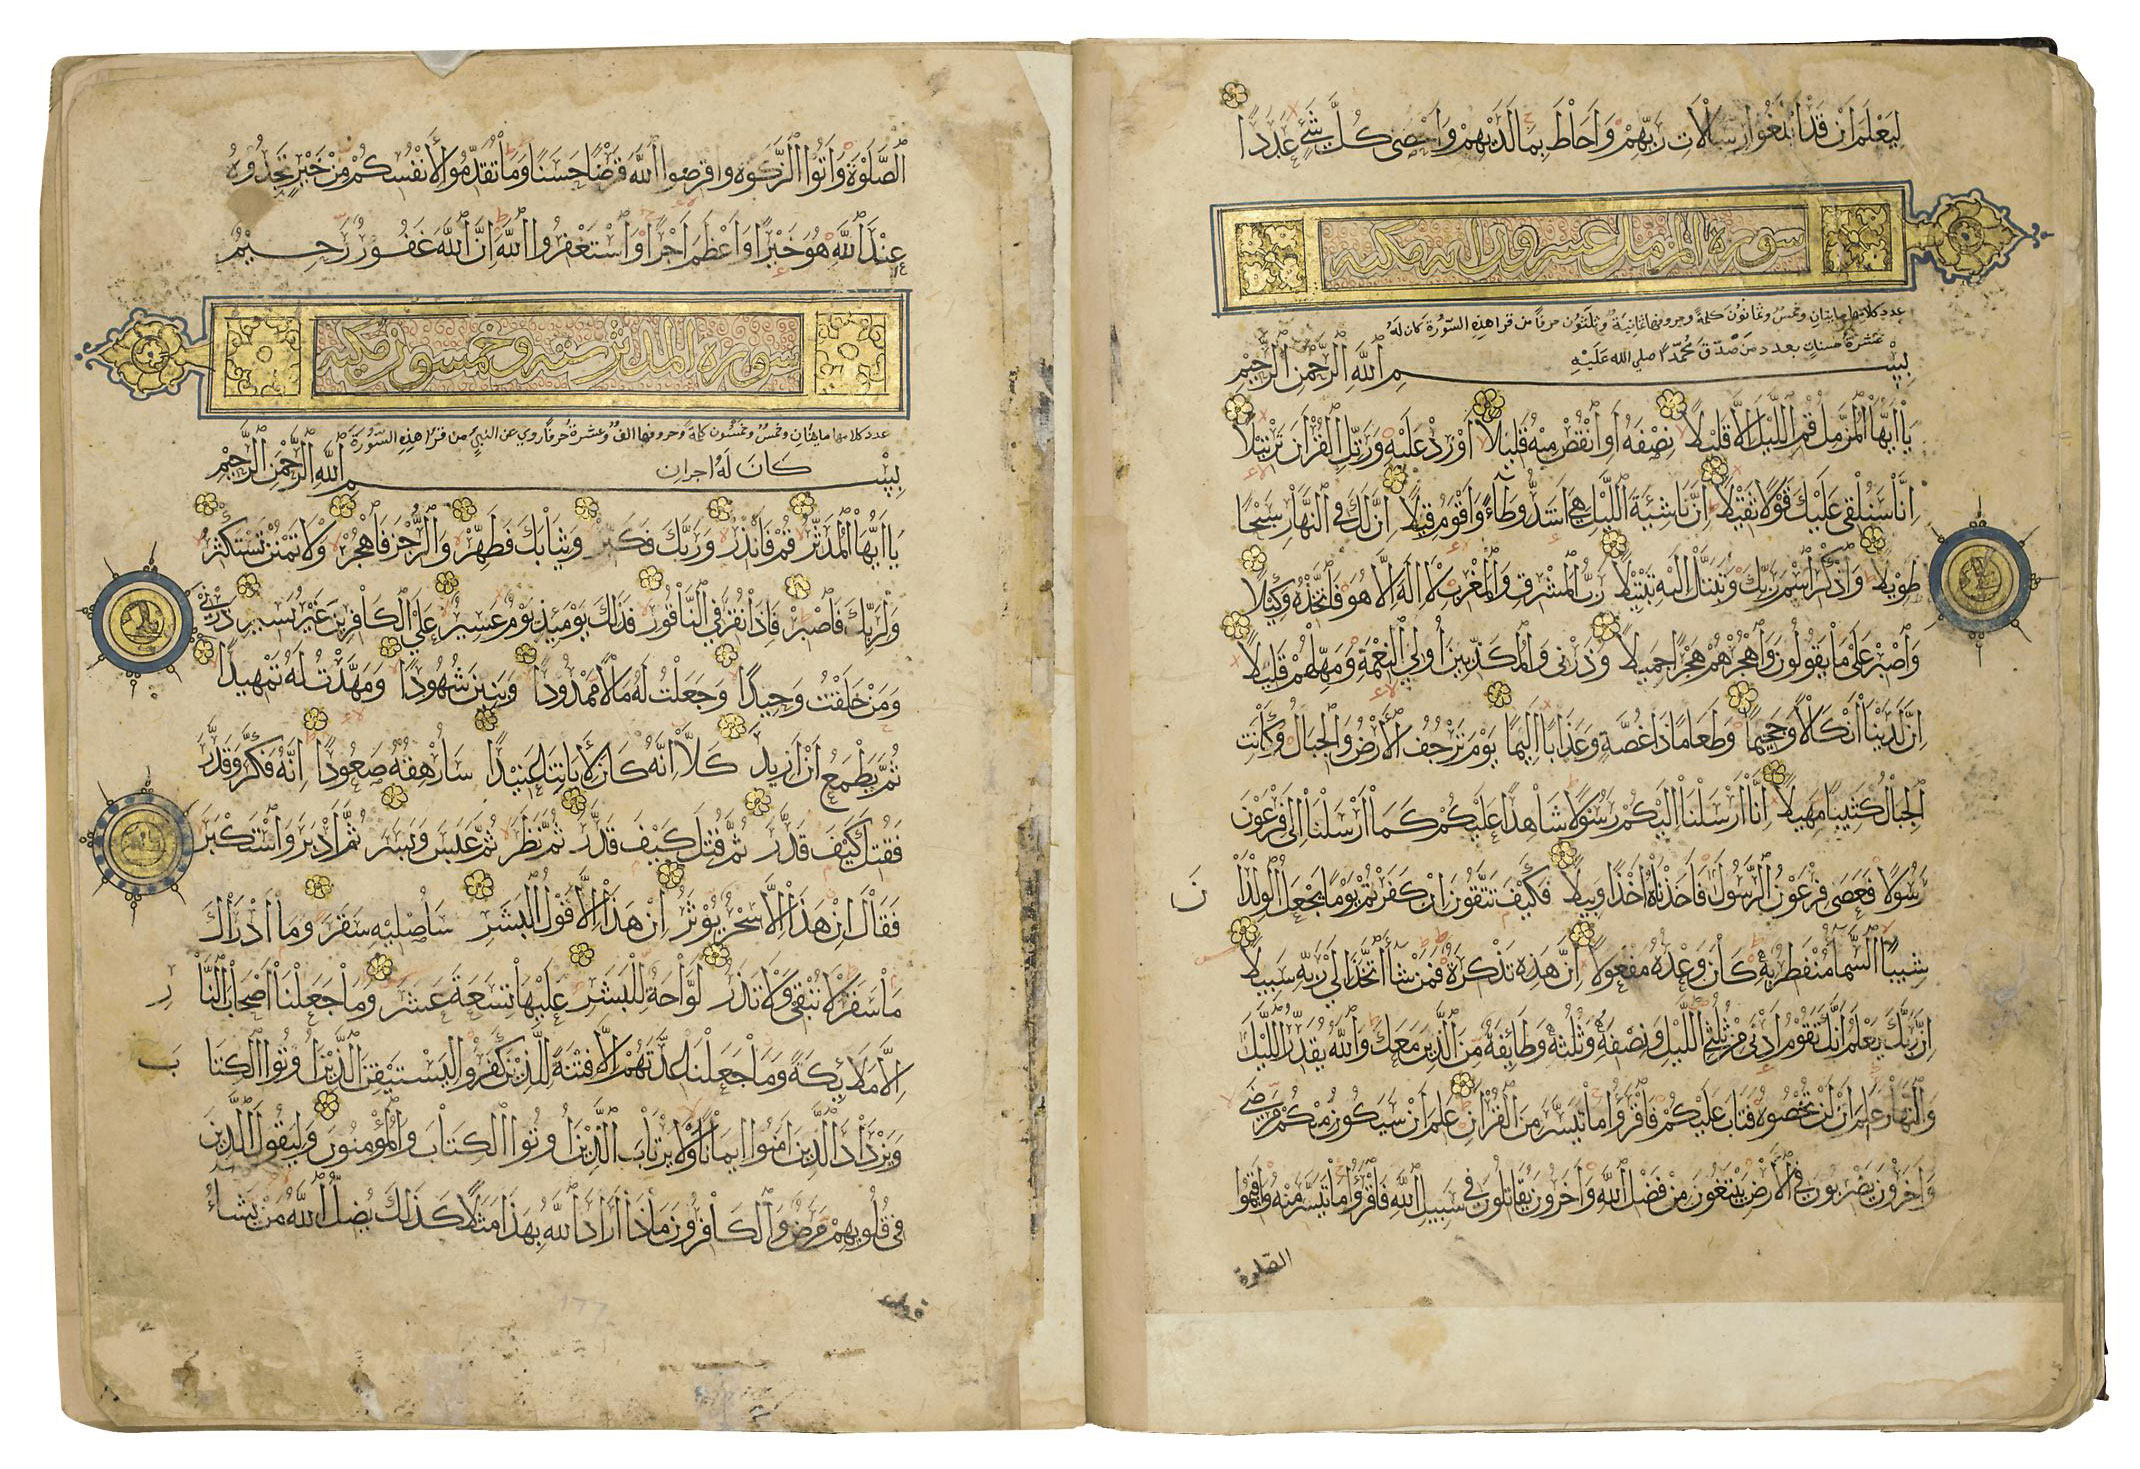 لِيَعْلَمَ اَنْ قَدْ اَبْلَغُوا رِسَالَاتِ رَبِّهِمْ وَاَحَاطَ بِمَا لَدَيْهِمْ وَاَحْصَى كُلَّ شَيْءٍ عَدَدًا
سورة المزمل عشرون اية مكية
عدد كلامها مايتان وخمس وثمانون كلمة وحروفها ثمانية وثلثون حرفا من قرا هذه السورة كان له
عشرة حسنات بعدد من صدق محمدا صلى الله عليه
بِسْمِ اللَّهِ الرَّحْمٰنِ الرَّحِيْمِ
يَا اَيُّهَا الْمُزَّمِّلُ قُمِ اللَّيْلَ اِلَّا قَلِيْلًا نِصْفَهُ اَوِ انْقُصْ مِنْهُ قَلِيْلًا اَوْ زِدْ عَلَيْهِ وَرَتِّلِ الْقُرْاٰنَ تَرْتِيْلًا
اِنَّا سَنُلْقِي عَلَيْكَ قَوْلًا ثَقِيْلًا اِنَّ نَاشِئَةَ اللَّيْلِ هِيَ اَشَدُّ وَطْأً وَاَقْوَمُ قِيْلًا اِنَّ لَكَ فِي النَّهَارِ سَبْحًا
طَوِيْلًا وَاذْكُرِ اسْمَ رَبِّكَ وَتَبَتَّلْ اِلَيْهِ تَبْتِيْلًا رَبُّ الْمَشْرِقِ وَالْمَغْرِبِ لَا اِلٰهَ اِلَّا هُوَ فَاتَّخِذْهُ وَكِيْلًا
وَاصْبِرْ عَلَى مَا يَقُولُونَ وَاهْجُرْهُمْ هَجْرًا جَمِيْلًا وَذَرْنِي وَالْمُكَذِّبِيْنَ اُولِي النَّعْمَةِ وَمَهِّلْهُمْ قَلِيْلًا
اِنَّ لَدَيْنَا اَنْكَالًا وَجَحِيْمًا وَطَعَامًا ذَا غُصَّةٍ وَعَذَابًا اَلِيْمًا يَوْمَ تَرْجُفُ الْاَرْضُ وَالْجِبَالُ وَكَانَتِ
الْجِبَالُ كَثِيْبًا مَهِيْلًا اِنَّا اَرْسَلْنَا اِلَيْكُمْ رَسُوْلًا شَاهِدًا عَلَيْكُمْ كَمَا اَرْسَلْنَا اِلَى فِرْعَوْنَ
رَسُوْلًا فَعَصَى فِرْعَوْنُ الرَّسُولَ فَاَخَذْنَاهُ اَخْذًا وَبِيْلًا فَكَيْفَ تَتَّقُونَ اِنْ كَفَرْتُمْ يَوْمًا يَجْعَلُ الْوِلْدَا
نَ
شِيْبًا السَّمَا مُنْفَطِرٌ بِهِ كَانَ وَعْدُهُ مَفْعُولًا اِنَّ هَذِهِ تَذْكِرَةٌ فَمَنْ شَا اتَّخَذَ اِلَى رَبِّهِ سَبِيْلًا
اِنَّ رَبَّكَ يَعْلَمُ اَنَّكَ تَقُومُ اَدْنَى مِنْ ثُلُثَيِ اللَّيْلِ وَنِصْفَهُ وَثُلُثَهُ وَطَائِفَةٌ مِنَ الَّذِيْنَ مَعَكَ وَاللَّهُ يُقَدِّرُ اللَّيْلَ
وَالنَّهَارَ عَلِمَ اَنْ لَنْ تُحْصُوهُ فَتَابَ عَلَيْكُمْ فَاقْرَؤُا مَا تَيَسَّرَ مِنَ الْقُرْاٰنِ عَلِمَ اَنْ سَيَكُونُ مِنْكُمْ مَرْضَى
وَاٰخَرُونَ يَضْرِبُونَ فِي الْاَرْضِ يَبْتَغُونَ مِنْ فَضْلِ اللَّهِ وَاٰخَرُونَ يُقَاتِلُونَ فِي سَبِيْلِ اللَّهِ فَاقْرَؤُا مَا تَيَسَّرَ مِنْهُ وَاَقِيمُوا
الصلوة
الصَّلٰوةَ وَاٰتُوا الزَّكٰوةَ وَاَقْرِضُوا اللَّهَ قَرْضًا حَسَنًا وَمَا تُقَدِّمُوا لِاَنْفُسِكُمْ مِنْ خَيْرٍ تَجِدُوهُ
عِنْدَ اللَّهِ هُوَ خَيْرًا وَاَعْظَمَ اَجْرًا وَاسْتَغْفِرُوا اللَّهَ اِنَّ اللَّهَ غَفُورٌ رَحِيْمٌ
سورة المدثر ستة وخمسون مكية
عدد كلامها مايتان وخمس وخمسون كلمة وحروفها الف وعشرة حرفا روي عن النبي من قرا هذه السورة
كان له اجران
بِسْمِ اللَّهِ الرَّحْمٰنِ الرَّحِيْمِ
يَا اَيُّهَا الْمُدَّثِّرُ قُمْ فَاَنْذِرْ وَرَبَّكَ فَكَبِّرْ وَثِيَابَكَ فَطَهِّرْ وَالرُّجْزَ فَاهْجُرْ وَلَا تَمْنُنْ تَسْتَكْثِرُ
وَلِرَبِّكَ فَاصْبِرْ فَاِذَا نُقِرَ فِي النَّاقُورِ فَذٰلِكَ يَوْمَئِذٍ يَوْمٌ عَسِيْرٌ عَلَى الْكَافِرِيْنَ غَيْرُ يَسِيْرٍ ذَرْنِي
وَمَنْ خَلَقْتُ وَحِيْدًا وَجَعَلْتُ لَهُ مَالًا مَمْدُودًا وَبَنِيْنَ شُهُودًا وَمَهَّدْتُ لَهُ تَمْهِيْدًا
ثُمَّ يَطْمَعُ اَنْ اَزِيْدَ كَلَّا اِنَّهُ كَانَ لِاٰيَاتِنَا عَنِيْدًا سَاُرْهِقُهُ صَعُودًا اِنَّهُ فَكَّرَ وَقَدَّرَ
فَقُتِلَ كَيْفَ قَدَّرَ ثُمَّ قُتِلَ كَيْفَ قَدَّرَ ثُمَّ نَظَرَ ثُمَّ عَبَسَ وَبَسَرَ ثُمَّ اَدْبَرَ وَاسْتَكْبَرَ
فَقَالَ اِنْ هَذَا اِلَّا سِحْرٌ يُؤْثَرُ اِنْ هَذَا اِلَّا قَوْلُ الْبَشَرِ سَاُصْلِيْهِ سَقَرَ وَمَا اَدْرٰكَ
مَا سَقَرُ لَا تُبْقِي وَلَا تَذَرُ لَوَّاحَةٌ لِلْبَشَرِ عَلَيْهَا تِسْعَةَ عَشَرَ وَمَا جَعَلْنَا اَصْحَابَ النَّا
رِ
اِلَّا مَلَائِكَةً وَمَا جَعَلْنَا عِدَّتَهُمْ اِلَّا فِتْنَةً لِلَّذِيْنَ كَفَرُوا لِيَسْتَيْقِنَ الَّذِيْنَ اُوتُوا الْكِتَا
بَ
وَيَزْدَادَ الَّذِيْنَ اٰمَنُوا اِيمَانًا وَلَا يَرْتَابَ الَّذِيْنَ اُوتُوا الْكِتَابَ وَالْمُؤْمِنُونَ وَلِيَقُولَ الَّذِيْنَ
فِي قُلُوبِهِمْ مَرَضٌ وَالْكَافِرُونَ مَاذَا اَرَادَ اللَّهُ بِهَذَا مَثَلًا كَذٰلِكَ يُضِلُّ اللَّهُ مَنْ يَشَاءُ